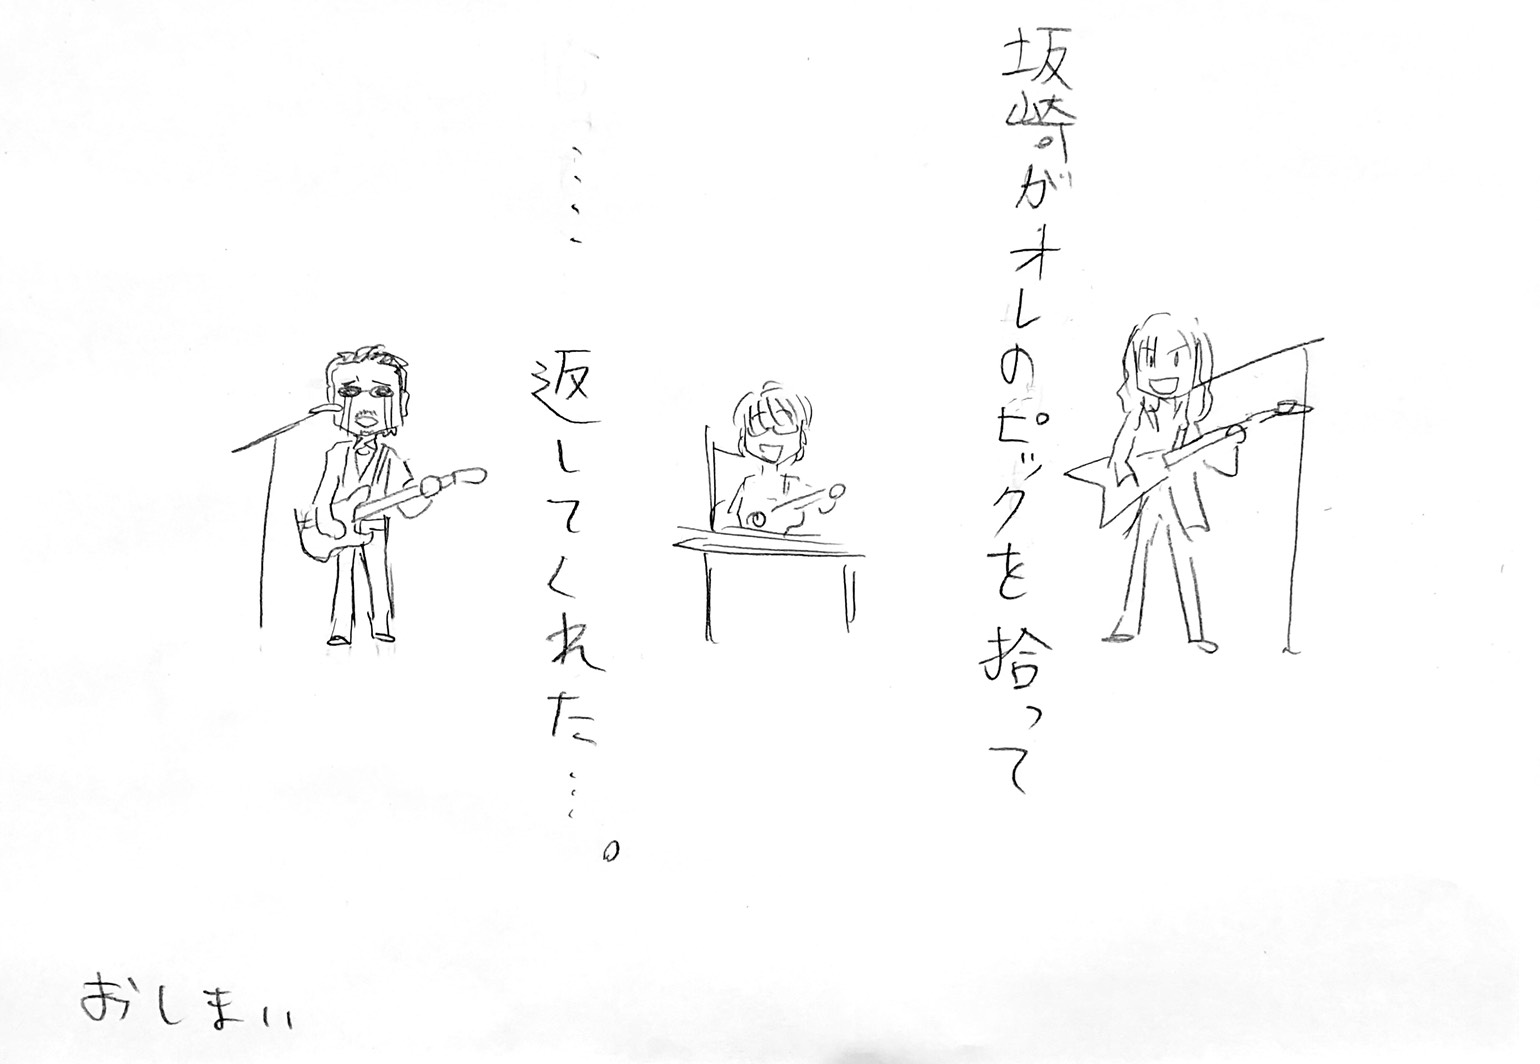 坂崎がオレのピックを拾って
‥‥返してくれた…。
おしまい